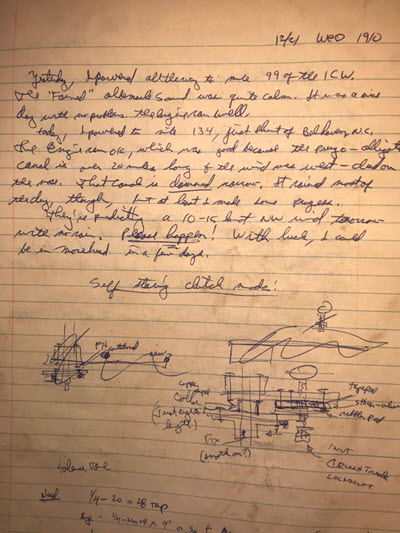 12/21 WED 1910
Yesterday, I powered all the way to mile 99 of the ICW.
The "Feared" Albemarle Sound was quite calm. It was a nice
day with no problems. The engine ran well.
Today, I powered to mile 134, just short of Belhaven, N.C.
The Engine ran OK, which was good because the pungo - alligator
canal is over 20 miles long & the wind was west - dead on
the nose. That canal is damned narrow. It rained most of
the day, though, but at least I made some progress.
They're predicting a 10-15 knot NW wind tomorrow
with no rain. Please happen! With luck, I could
be in morehead in a few days.
Self steering clutch mods:
collar
length)
Fit
Nut
Need 1/4-20 tap